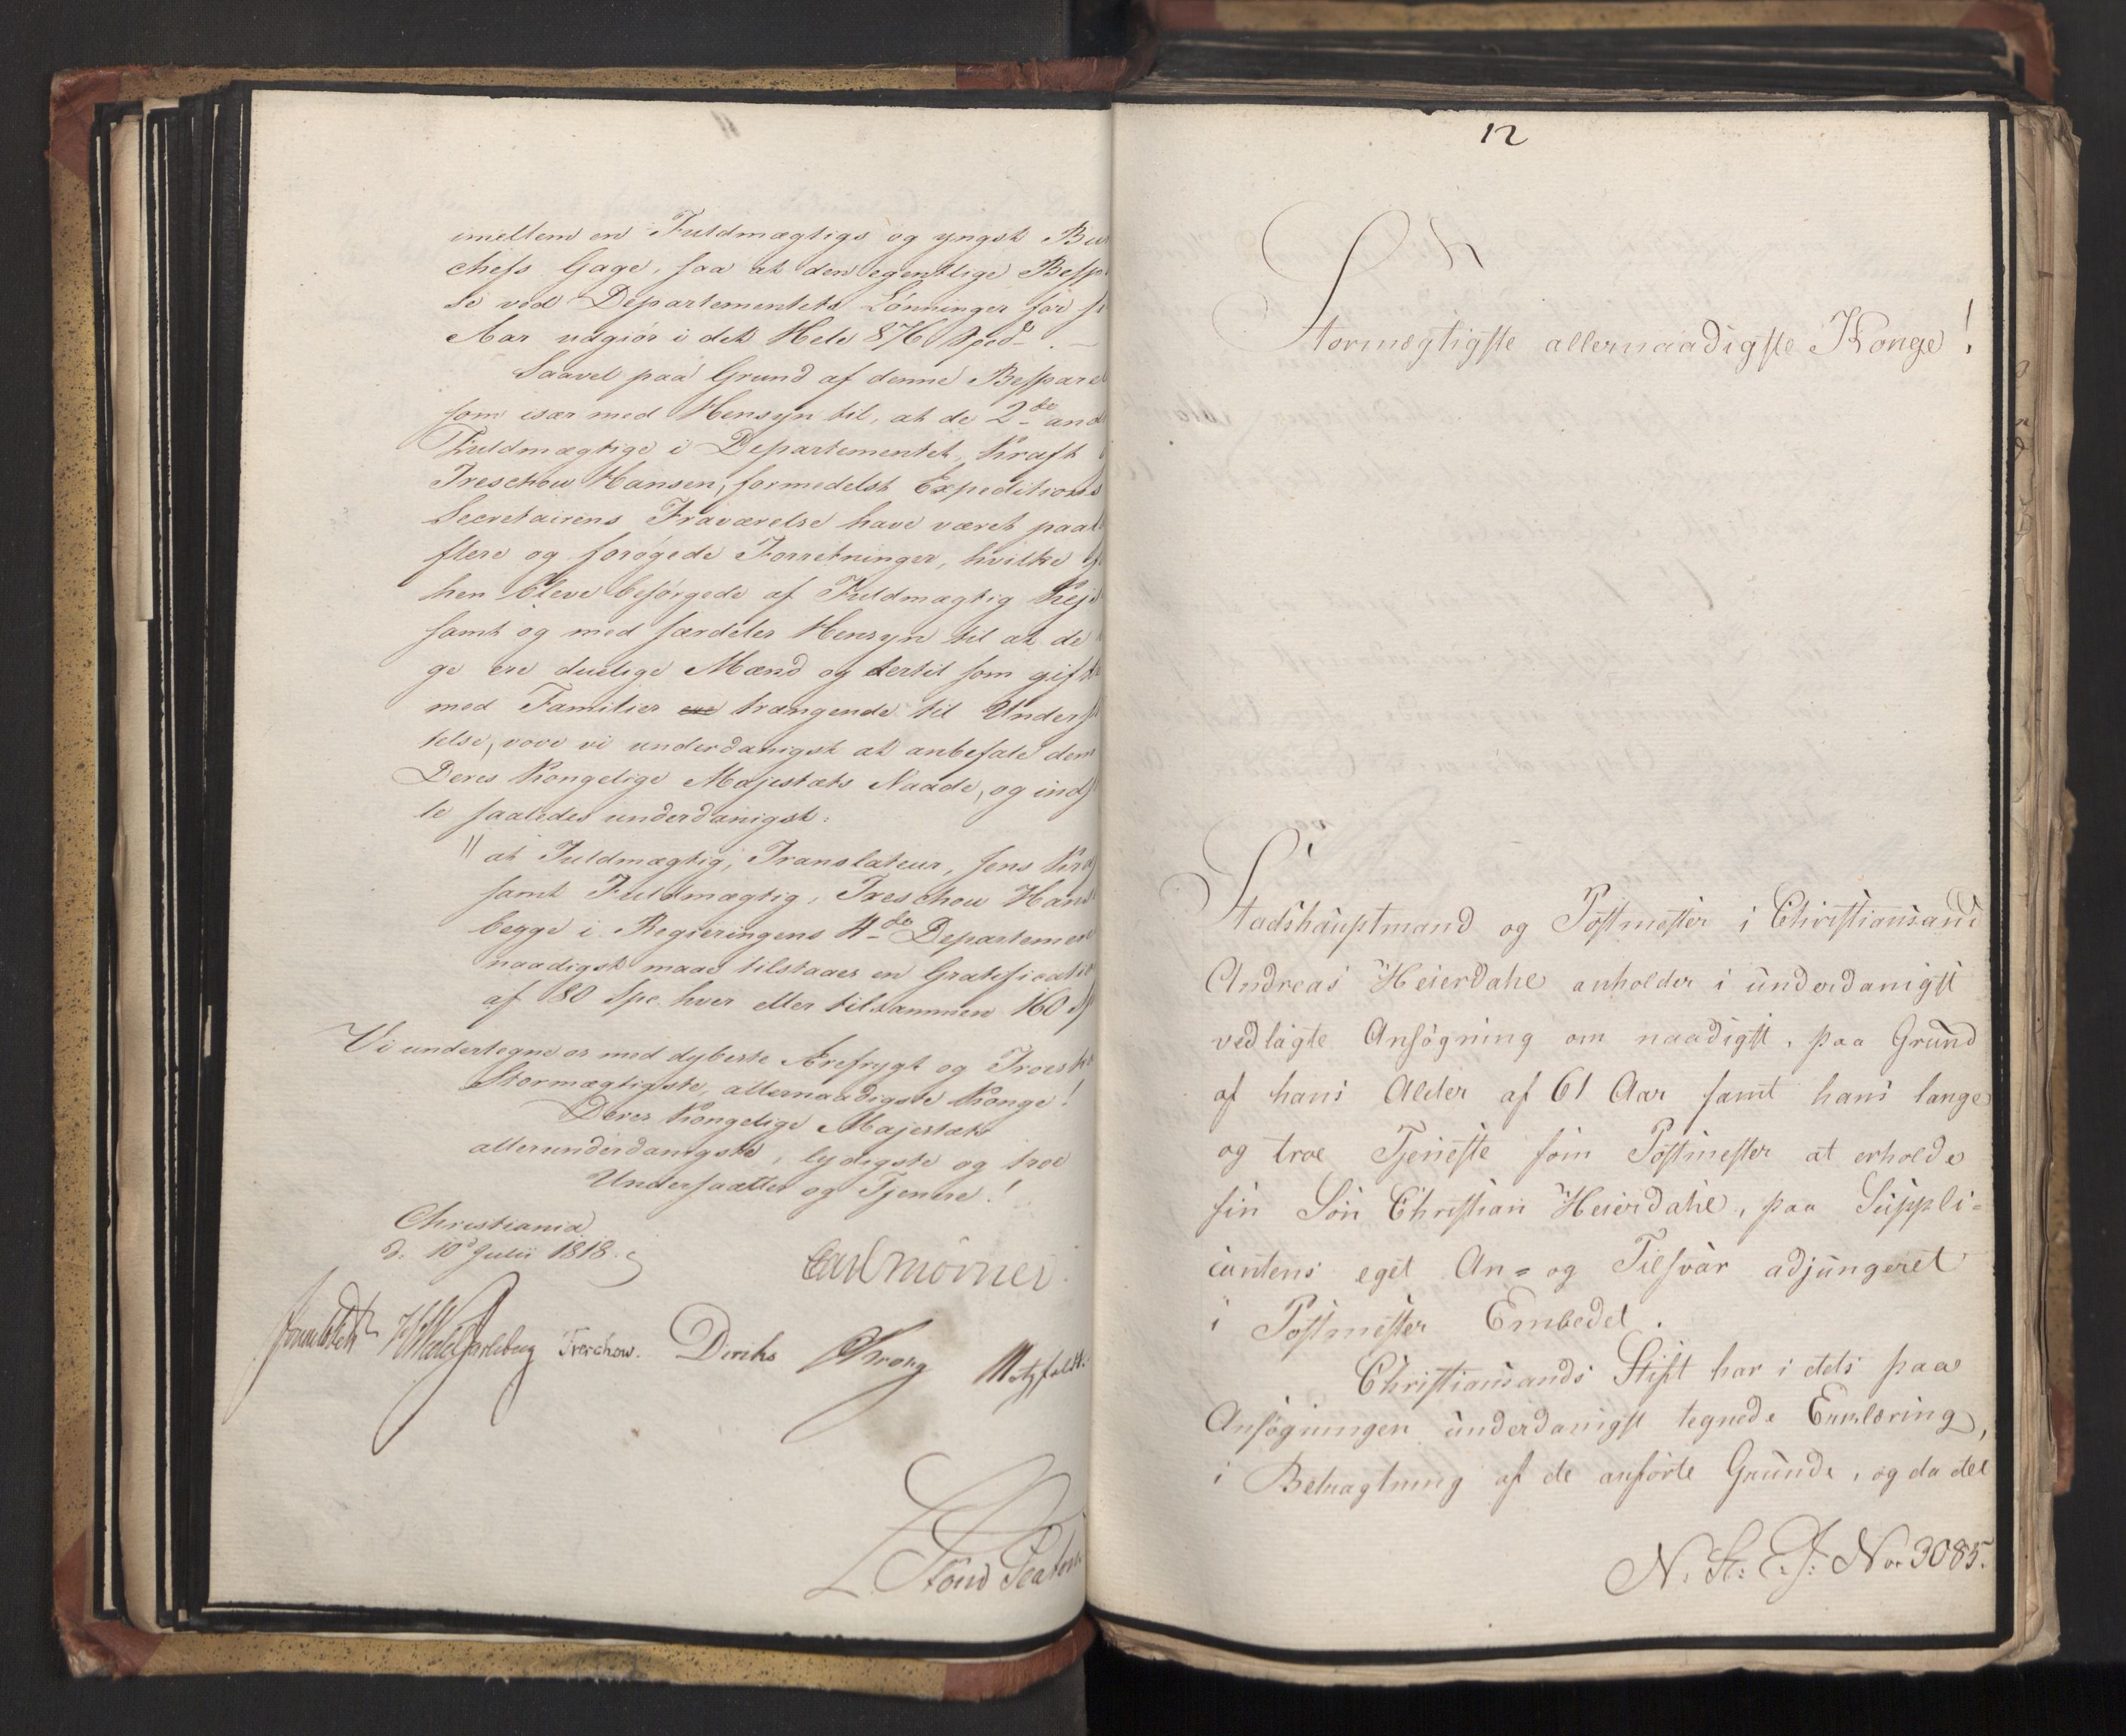 imellem en Fuldmægtigs og yngst Bur
chefs Gage, saa at den egentlige Bespa
se ved Departementets Lønninger for
Aar udgiør i det Hele 876 Spd.
Saavel paa Grund af denne Besparel
som især med Hensyn til, at de 2de and
Fuldmægtige i Departementet, Kraft
Treschow Hansen, formedelst Expeditions
Secretairens Fraværelse have været paal
flere og forøgede Forretninger, hvilke
hen bleve besørgede af Fuldmægtig
samt og med særdeles Hensyn til at de
ge ere duelige Mænd og dertil som gifte
med Familier ere trængende til Underst
telse, vove vi underdanigst at anbefale dem
Deres Kongelige Majestæts Naade, og indst
le saaledes underdanigst:
"at Fuldmægtig, Translateur, Jens Kra
samt Fuldmægtig, Treschow Hans
begge i Regjeringens 4de Departement
naadigst maae tilstaaes en Gratificatio
af 80 Spc. hver eller tilsammen 160 Sp
Vi undertegne os med dybeste Ærefrygt og Troesk
Stormægtigste, allernaadigste Konge!
Deres Kongelige Majestæts
allerunderdanigste, lydigste og troe
Undersaatter og Tjenere!
Christiania
d. 10d Julii 1818.
Carl Mörner.
Sommerfeldt HWedelJarlsberg Treschow. Diriks CKrohg Motzfeldt.
12
Stormægtigste allernaadigste Konge!
Stadshauptmand og Postmester i Christiansand
Andreas Heierdahl anholder i underdanigst
vedlagte Ansøgning om naadigst, paa Grund
af hans Alder af 61 Aar samt hans lange
og troe Tjeneste som Postmester at erholde
sin Søn Christian Heierdahl, paa Suppli=
cantens eget An= og Tilsvar adjungeret
i Postmester Embedet.
Christiansands Stift har i dets paa
Ansøgningen underdanigst tegnede Erklæring,
i Betragtning af de anførte Grunde, og da det
N. St. E. J. No. 3085.